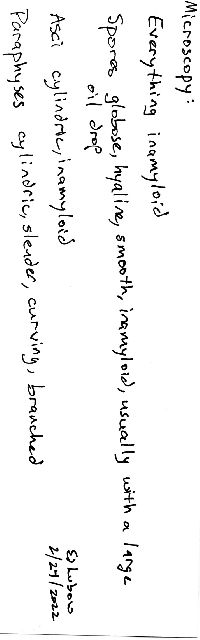 Microscopy:
Everything inamyloid
Spores globose, hyaline, smooth, inamyloid, usually with a large
oil drop
Asci cylindric, inamyloid
Paraphyses cylindric, slender, curving, branched
Ed Lubow
2/24/2022